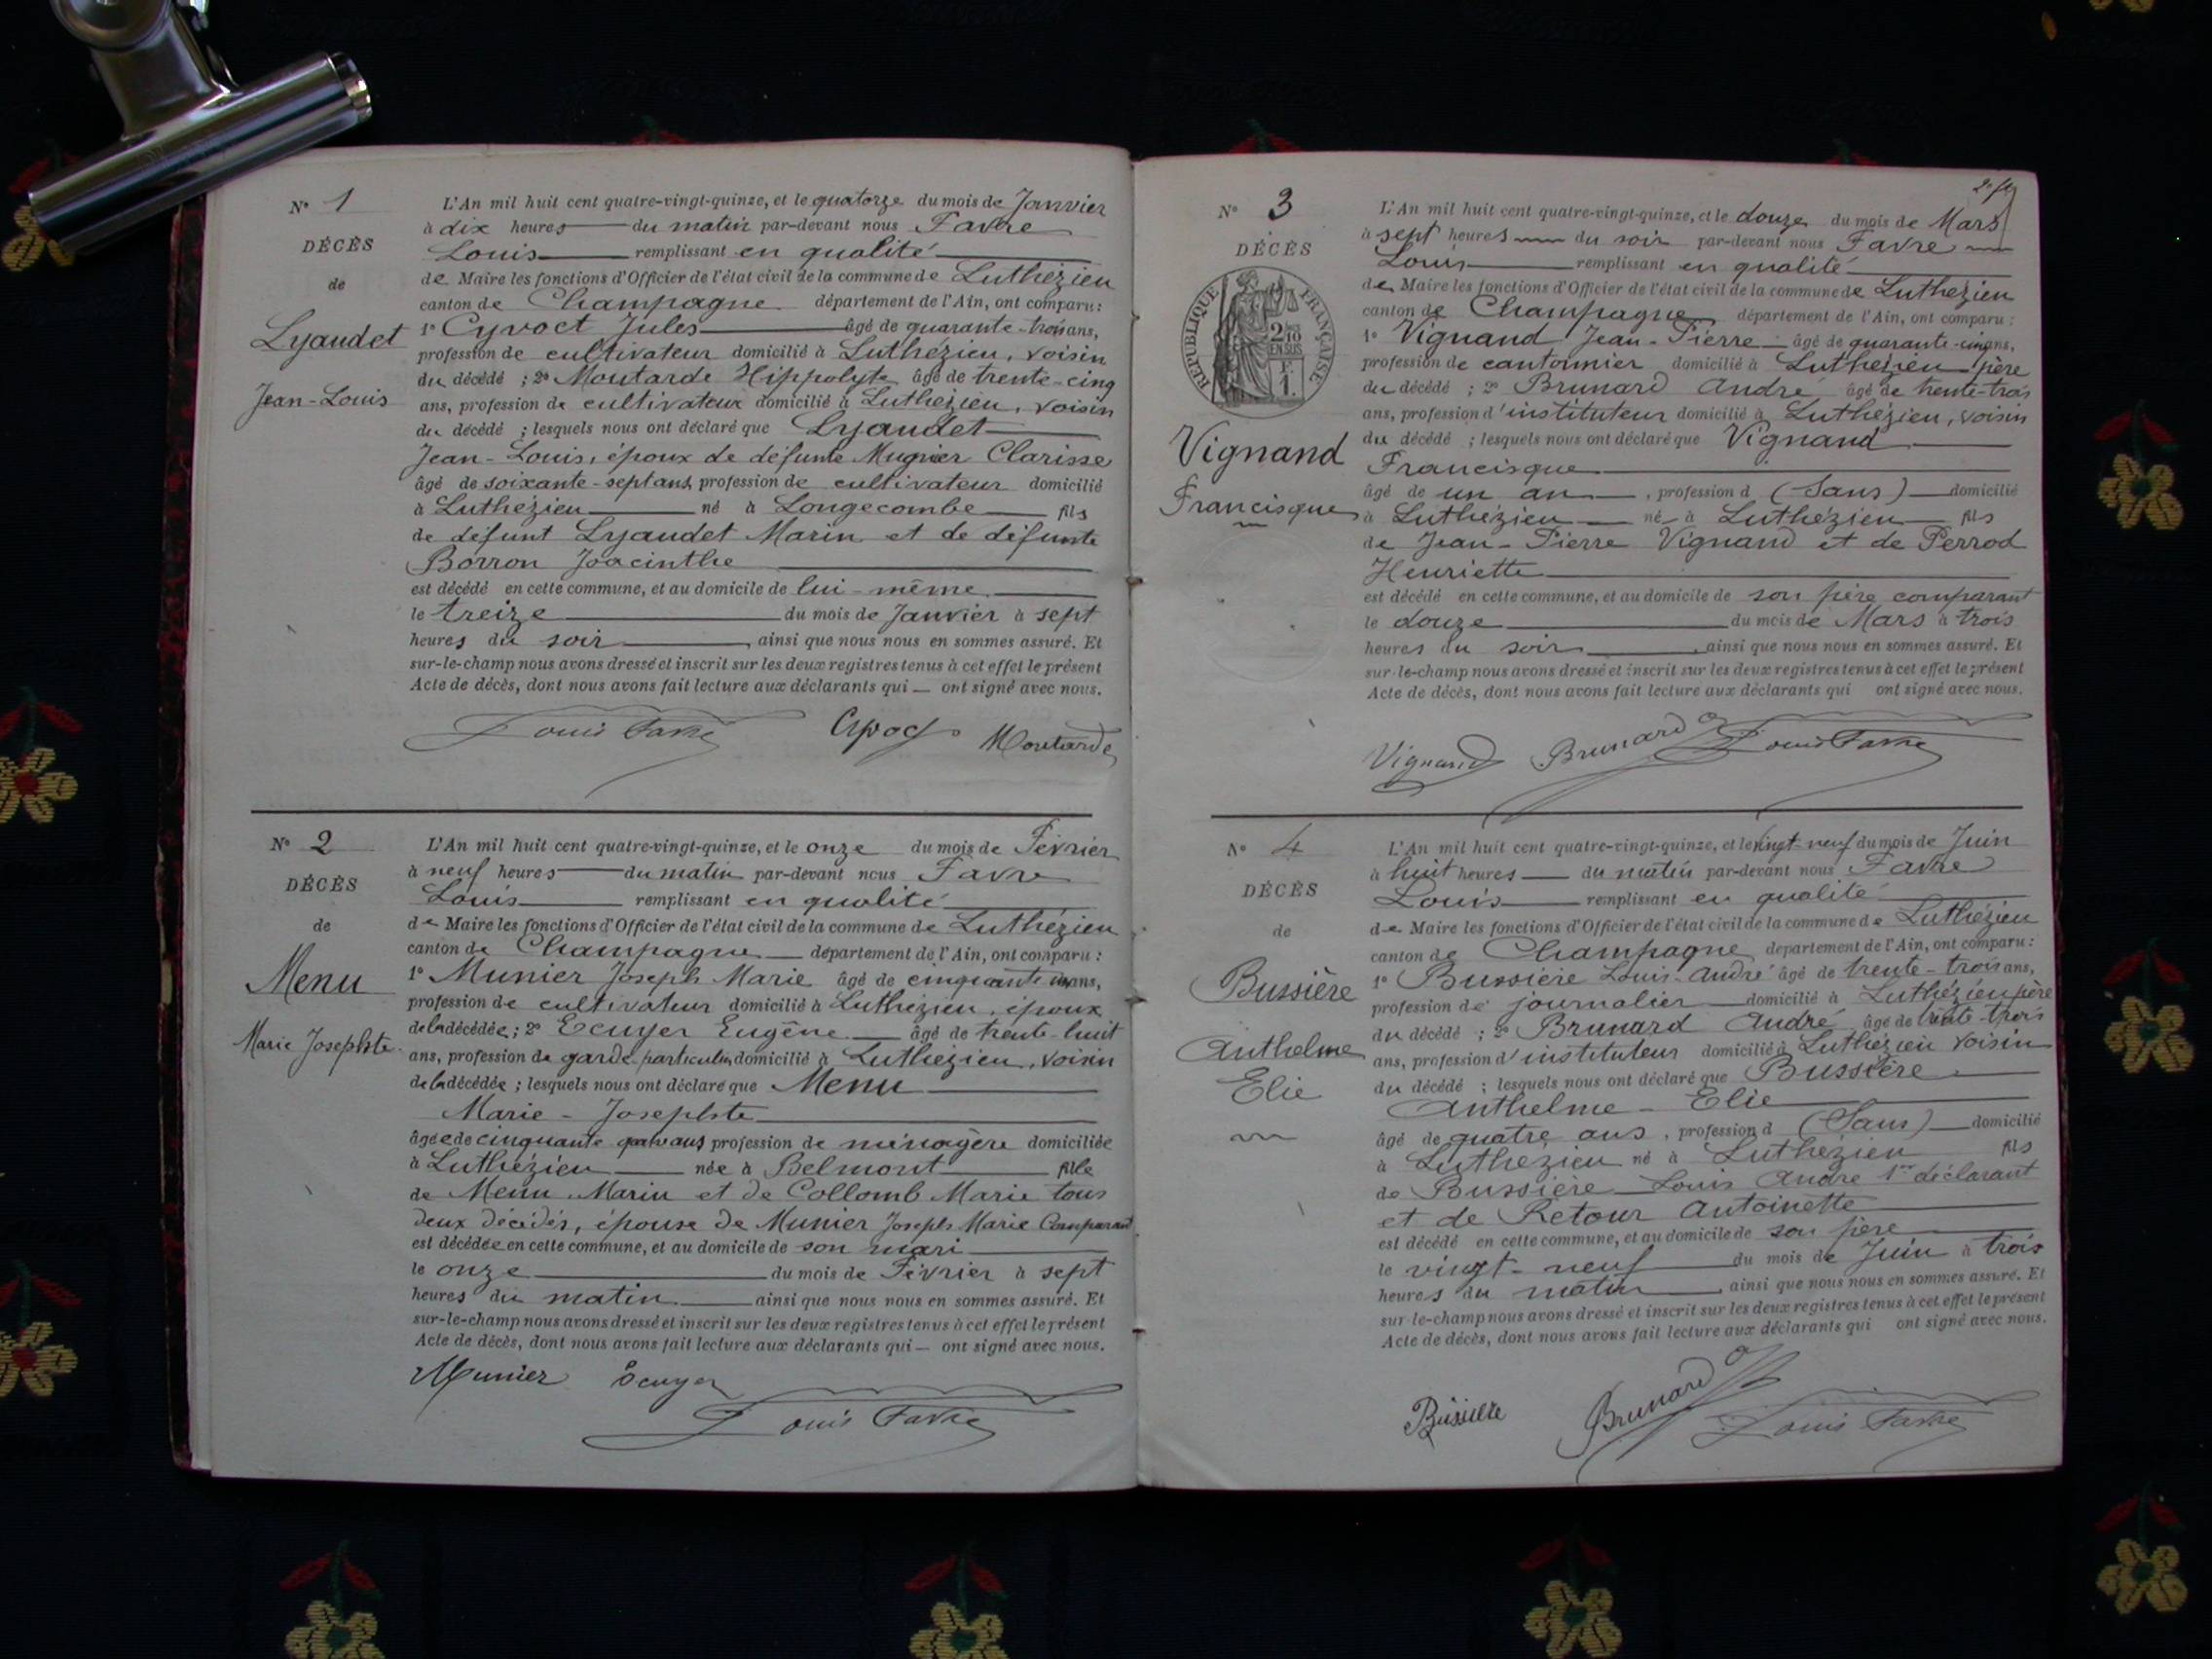 N° 1
DÉCÈS
de
Lyaudet
Jean-Louis
L'An mil huit cent quatre-vingt-quinze, et le quatorze du mois de Janvier
à dix heures du matin par-devant nous Favre
Louis remplissant en qualité
de Maire les fonctions d'Officier de l'état civil de la commune de Luthézieu
canton de Champagne département de l'Ain, ont comparu :
1° Cyvoct Jules âgé de quarante-trois ans,
profession de cultivateur domicilié à Luthézieu, voisin
du décédé ; 2° Moutarde Hippolyte âgé de trente-cinq
ans, profession de cultivateur domicilié à Luthézieu, voisin
du décédé ; lesquels nous ont déclaré que Lyaudet
Jean-Louis, époux de défunte Mugnier Clarisse
âgé de soixante-sept ans, profession de cultivateur domicilié
à Luthézieu né à Longecombe fils
de défunt Lyaudet Marin et de défunte
Borron Joacinthe
est décédé en cette commune, et au domicile de lui-même
le treize du mois de Janvier à sept
heures du soir, ainsi que nous nous en sommes assuré. Et
sur-le-champ nous avons dressé et inscrit sur les deux registres tenus à cet effet le présent
Acte de décès, dont nous avons fait lecture aux déclarants qui — ont signé avec nous.
Louis Favre Moutarde
N° 2
DÉCÈS
de
Menu
Marie Josephte
L'An mil huit cent quatre-vingt-quinze, et le onze du mois de Février
à neuf heures du matin par-devant nous Favre
Louis remplissant en qualité
de Maire les fonctions d'Officier de l'état civil de la commune de Luthézieu
canton de Champagne département de l'Ain, ont comparu :
1° Munier Joseph Marie âgé de cinquante ans,
profession de cultivateur domicilié à Luthézieu, époux
de la décédée ; 2° Ecuyer Eugène âgé de trente-huit
ans, profession de garde-particulier domicilié à Luthézieu, voisin
de la décédée ; lesquels nous ont déclaré que Menu
Marie-Josephte
âgée de cinquante ans, profession de ménagère domiciliée
à Luthézieu née à Belmont fille
de Menu Marin et de Collomb Marie tous
deux décédés, épouse de Munier Joseph Marie Comparant
est décédée en cette commune, et au domicile de son mari
le onze du mois de Février à sept
heures du matin ainsi que nous nous en sommes assuré. Et
sur-le-champ nous avons dressé et inscrit sur les deux registres tenus à cet effet le présent
Acte de décès, dont nous avons fait lecture aux déclarants qui — ont signé avec nous.
Munier Ecuyer
Louis Favre
N° 3
DÉCÈS
RÉPUBLIQUE FRANÇAISE
2/10
EN SUS
F.
1.
Vignand
Francisque
L'An mil huit cent quatre-vingt-quinze, et le douze du mois de Mars
à sept heures du soir par-devant nous Favre
Louis remplissant en qualité
de Maire les fonctions d'Officier de l'état civil de la commune de Luthézieu
canton de Champagne département de l'Ain, ont comparu :
1° Vignand Jean-Pierre âgé de quarante-cinq ans,
profession de cantonnier domicilié à Luthézieu, père
du décédé ; 2° Brunard André âgé de trente-trois
ans, profession d'instituteur domicilié à Luthézieu, voisin
du décédé ; lesquels nous ont déclaré que Vignand
Francisque
âgé de un an, profession d (Sans) domicilié
à Luthézieu né à Luthézieu fils
de Jean-Pierre Vignand et de Perrod
Henriette
est décédé en cette commune, et au domicile de son père comparant
le douze du mois de Mars à trois
heures du soir, ainsi que nous nous en sommes assuré. Et
sur-le-champ nous avons dressé et inscrit sur les deux registres tenus à cet effet le présent
Acte de décès, dont nous avons fait lecture aux déclarants qui ont signé avec nous.
Vignand Brunard Louis Favre
N° 4
DÉCÈS
de
Bussière
Anthelme
Elie
L'An mil huit cent quatre-vingt-quinze, et le vingt-neuf du mois de Juin
à huit heures du matin par-devant nous Favre
Louis remplissant en qualité
de Maire les fonctions d'Officier de l'état civil de la commune de Luthézieu
canton de Champagne département de l'Ain, ont comparu :
1° Bussière Louis-André âgé de trente-trois ans,
profession de journalier domicilié à Luthézieu père
du décédé ; 2° Brunard André âgé de trente-trois
ans, profession d'instituteur domicilié à Luthézieu voisin
du décédé ; lesquels nous ont déclaré que Bussière
Anthelme-Elie
âgé de quatre ans, profession d (Sans) domicilié
à Luthézieu né à Luthézieu fils
de Bussière Louis André 1er déclarant
et de Retour Antoinette
est décédé en cette commune, et au domicile de son père
le vingt-neuf du mois de Juin à trois
heures du matin, ainsi que nous nous en sommes assuré. Et
sur-le-champ nous avons dressé et inscrit sur les deux registres tenus à cet effet le présent
Acte de décès, dont nous avons fait lecture aux déclarants qui ont signé avec nous.
Bussière Brunard Louis Favre